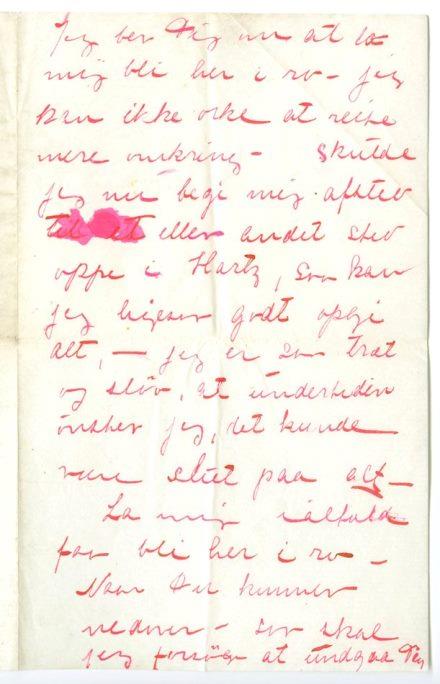 Jeg ber Dig om at la
mig bli her i ro – jeg
kan ikke orke at reise
mere omkring – skulde
jeg nu begi mig afsted
til et eller andet sted
oppe i Hartz, saa kan
jeg ligesaa godt opgi
alt, – jeg er saa træt
og sløv, at undertiden
ønsker jeg, det kunde
være slut paa alt –
La mig ialfald
faa bli her i ro –
Naar Du kommer
nedover – saa skal
jeg forsøge at undgaa Dig